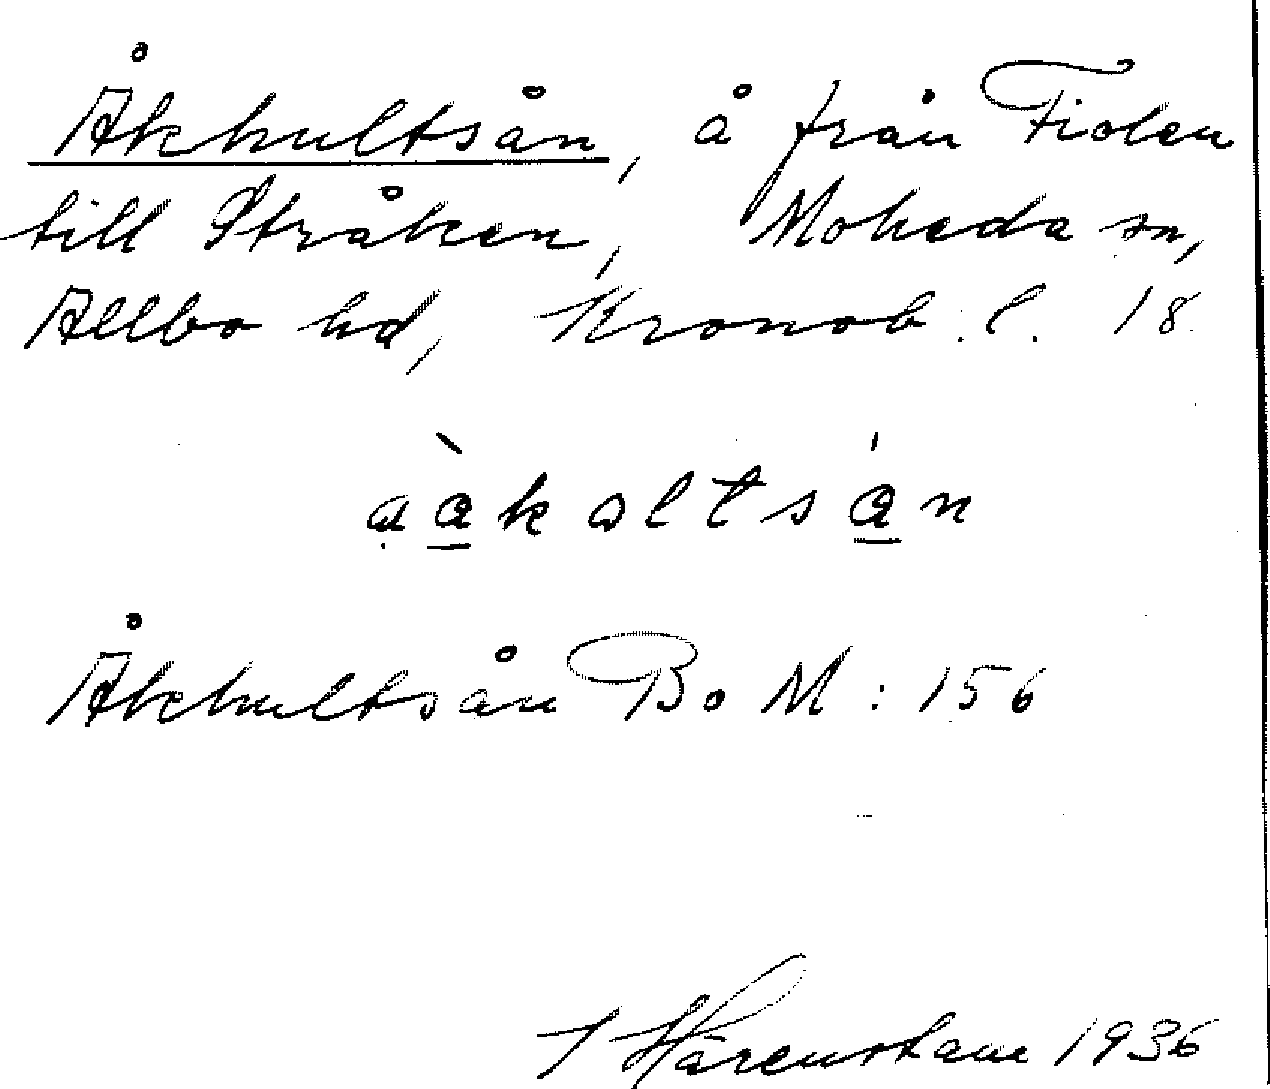 Åkhultsån, å från Fiolen
till Stråken, Moheda sn,
Allbo hd, Kronob. l. 18
Åkhultsån Bo M: 156
Härenstam 1936